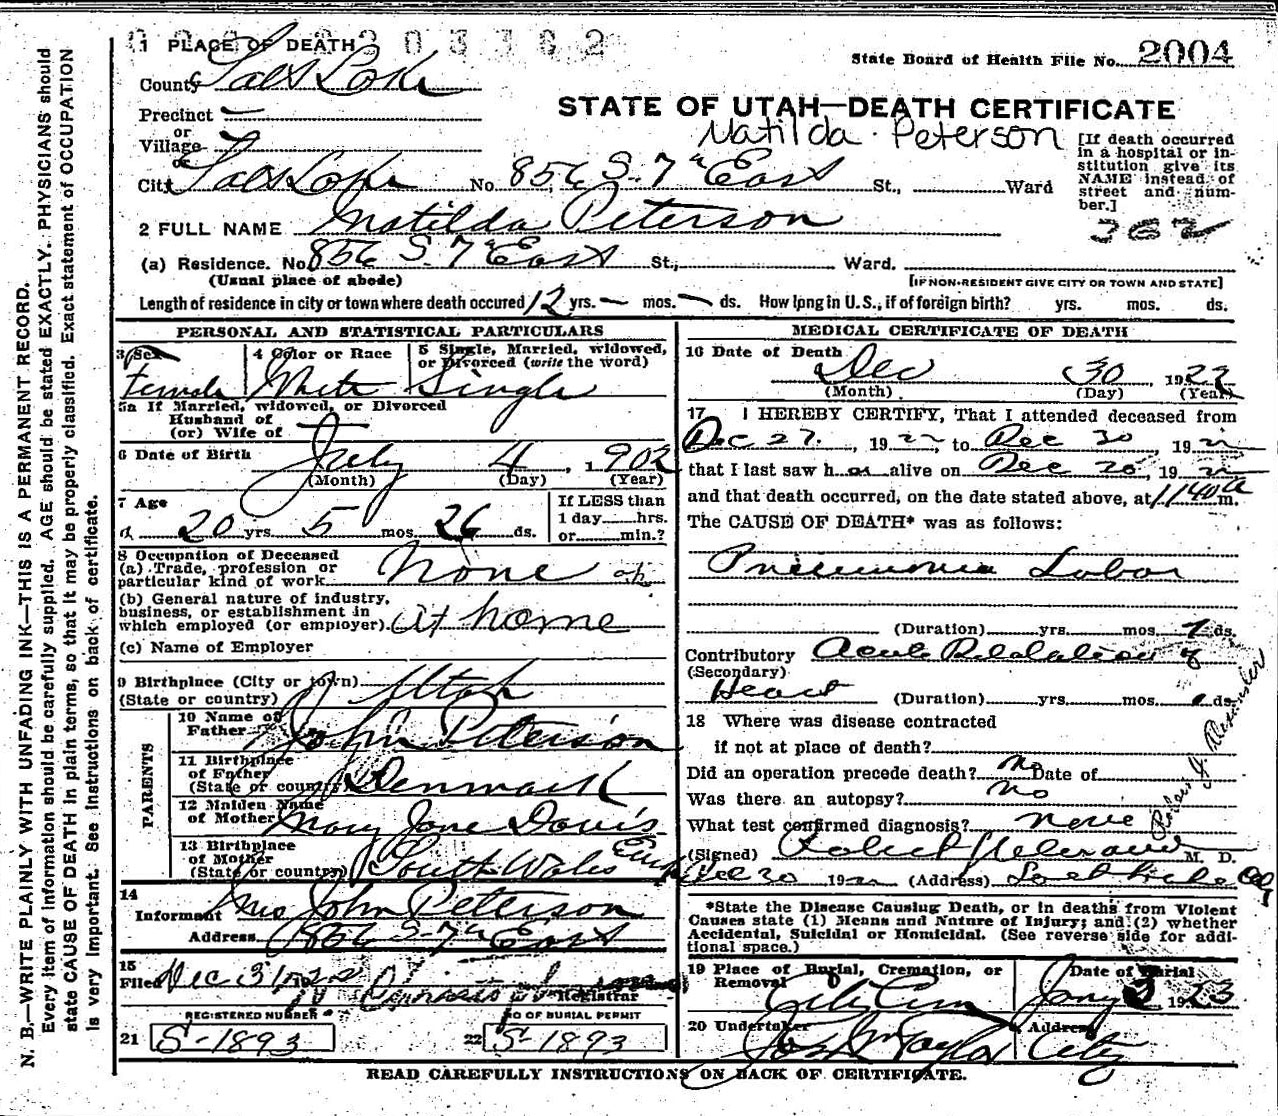 1 PLACE OF DEATH
State Board of Health File No. 2004
County Salt Lake
STATE OF UTAH—DEATH CERTIFICATE
Precinct —
or
Village
Matilda Peterson
[If death occurred in a hospital or institution give its NAME instead of street and number.]
or
City Salt Lake No. 856 S. 7" East St., Ward
362
2 FULL NAME Matilda Peterson
(a) Residence. No. 856 S. 7" East St., Ward.
(Usual place of abode) [IF NON-RESIDENT GIVE CITY OR TOWN AND STATE]
Length of residence in city or town where death occured 12 yrs. — mos. — ds. How long in U.S., if of foreign birth? yrs. mos. ds.
PERSONAL AND STATISTICAL PARTICULARS
3 Sex Female
4 Color or Race White
5 Single, Married, widowed, or Divorced (write the word) Single
5a If Married, widowed, or Divorced
Husband of
(or) Wife of
6 Date of Birth July 4, 1902
(Month) (Day) (Year)
7 Age
20 yrs. 5 mos. 26 ds.
If LESS than
1 day hrs.
or min.?
8 Occupation of Deceased
(a) Trade, profession or
particular kind of work None
(b) General nature of industry,
business, or establishment in
which employed (or employer) at home
(c) Name of Employer
9 Birthplace (City or town)
(State or country) Utah
PARENTS
10 Name of
Father John Peterson
11 Birthplace
of Father
(State or country) Denmark
12 Maiden Name
of Mother Mary Jane Davis
13 Birthplace
of Mother
(State or country) South Wales Eng
14
Informant Mrs John Peterson
Address 856 S-7" East
15
Filed Dec 31 1922
Registrar
REGISTERED NUMBER NO OF BURIAL PERMIT
21 S-1893 22 S-1893
MEDICAL CERTIFICATE OF DEATH
16 Date of Death
Dec 30, 1922
(Month) (Day) (Year)
17 I HEREBY CERTIFY, That I attended deceased from
Dec 27, 1922, to Dec 30 1922
that I last saw h alive on Dec 1922
and that death occurred, on the date stated above, at 1140 a m.
The CAUSE OF DEATH* was as follows:
Pneumonia Lobar
(Duration) yrs. mos. 7 ds.
Contributory Acute Dilatation of
(Secondary)
Heart (Duration) yrs. mos. ds.
18 Where was disease contracted
if not at place of death?
Did an operation precede death? no Date of
Was there an autopsy? no
What test confirmed diagnosis? none
(Signed) Robert M. D.
Dec 30 1922 (Address) Salt Lake City
*State the Disease Causing Death, or in deaths from Violent
Causes state (1) Means and Nature of Injury; and (2) whether
Accidental, Suicidal or Homicidal. (See reverse side for additional space.)
19 Place of Burial, Cremation, or
Removal City Cem
Date of Burial
Jany 2 1923
20 Undertaker Jos Wm Taylor
Address City
READ CAREFULLY INSTRUCTIONS ON BACK OF CERTIFICATE.
N. B.—WRITE PLAINLY WITH UNFADING INK—THIS IS A PERMANENT RECORD.
Every item of information should be carefully supplied. AGE should be stated EXACTLY. PHYSICIANS should
state CAUSE OF DEATH in plain terms, so that it may be properly classified. Exact statement of OCCUPATION
is very important. See Instructions on back of certificate.